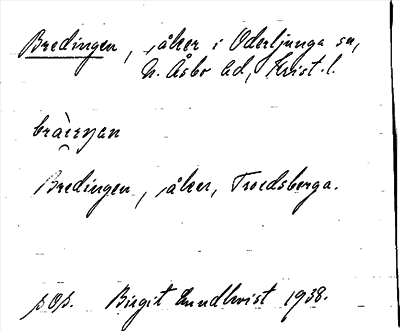 Bredingen, åker i Oderljunga sn,
N. Åsbo hd, Krist. l.
Bredingen, åker, Troedsberga.
pop. Birgit Lundkvist 1938.